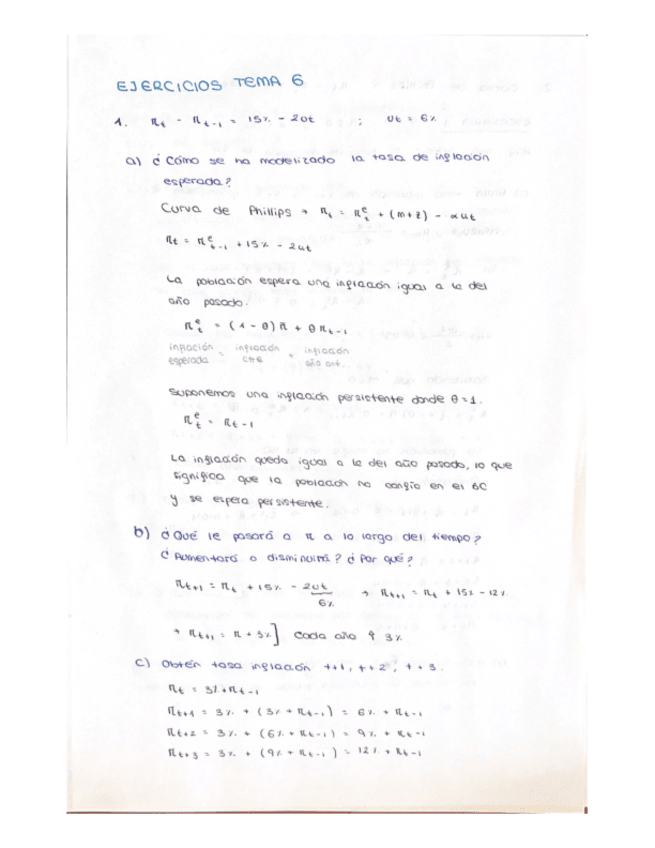 EJERCICIOS TEMA 6
1. π_t - π_t-1 = 15% - 2u_t ; u_t = 6%
a) ¿Cómo se ha modelizado la tasa de inflación
esperada?
Curva de Phillips → π_t = π^e_t + (m+z) - αu_t
π_t = π^e_t-1 + 15% - 2u_t
La población espera una inflación igual a la del
año pasado.
π^e_t = (1 - θ)π + θπ_t-1
inflación esperada = inflación cte + inflación año ant.
Suponemos una inflación persistente donde θ = 1.
π^e_t = π_t-1
La inflación queda igual a la del año pasado, lo que
significa que la población no confía en el BC
y se espera persistente.
b) ¿Qué le pasará a π a lo largo del tiempo?
¿Aumentará o disminuirá? ¿Por qué?
π_t+1 = π_t + 15% - 2u_t → π_t+1 = π_t + 15% - 12%
6%
→ π_t+1 = π + 3%] cada año ↑ 3%
c) Obtén tasa inflación t+1, t+2, t+3.
π_t = 3% + π_t-1
π_t+1 = 3% + (3% + π_t-1) = 6% + π_t-1
π_t+2 = 3% + (6% + π_t-1) = 9% + π_t-1
π_t+3 = 3% + (9% + π_t-1) = 12% + π_t-1